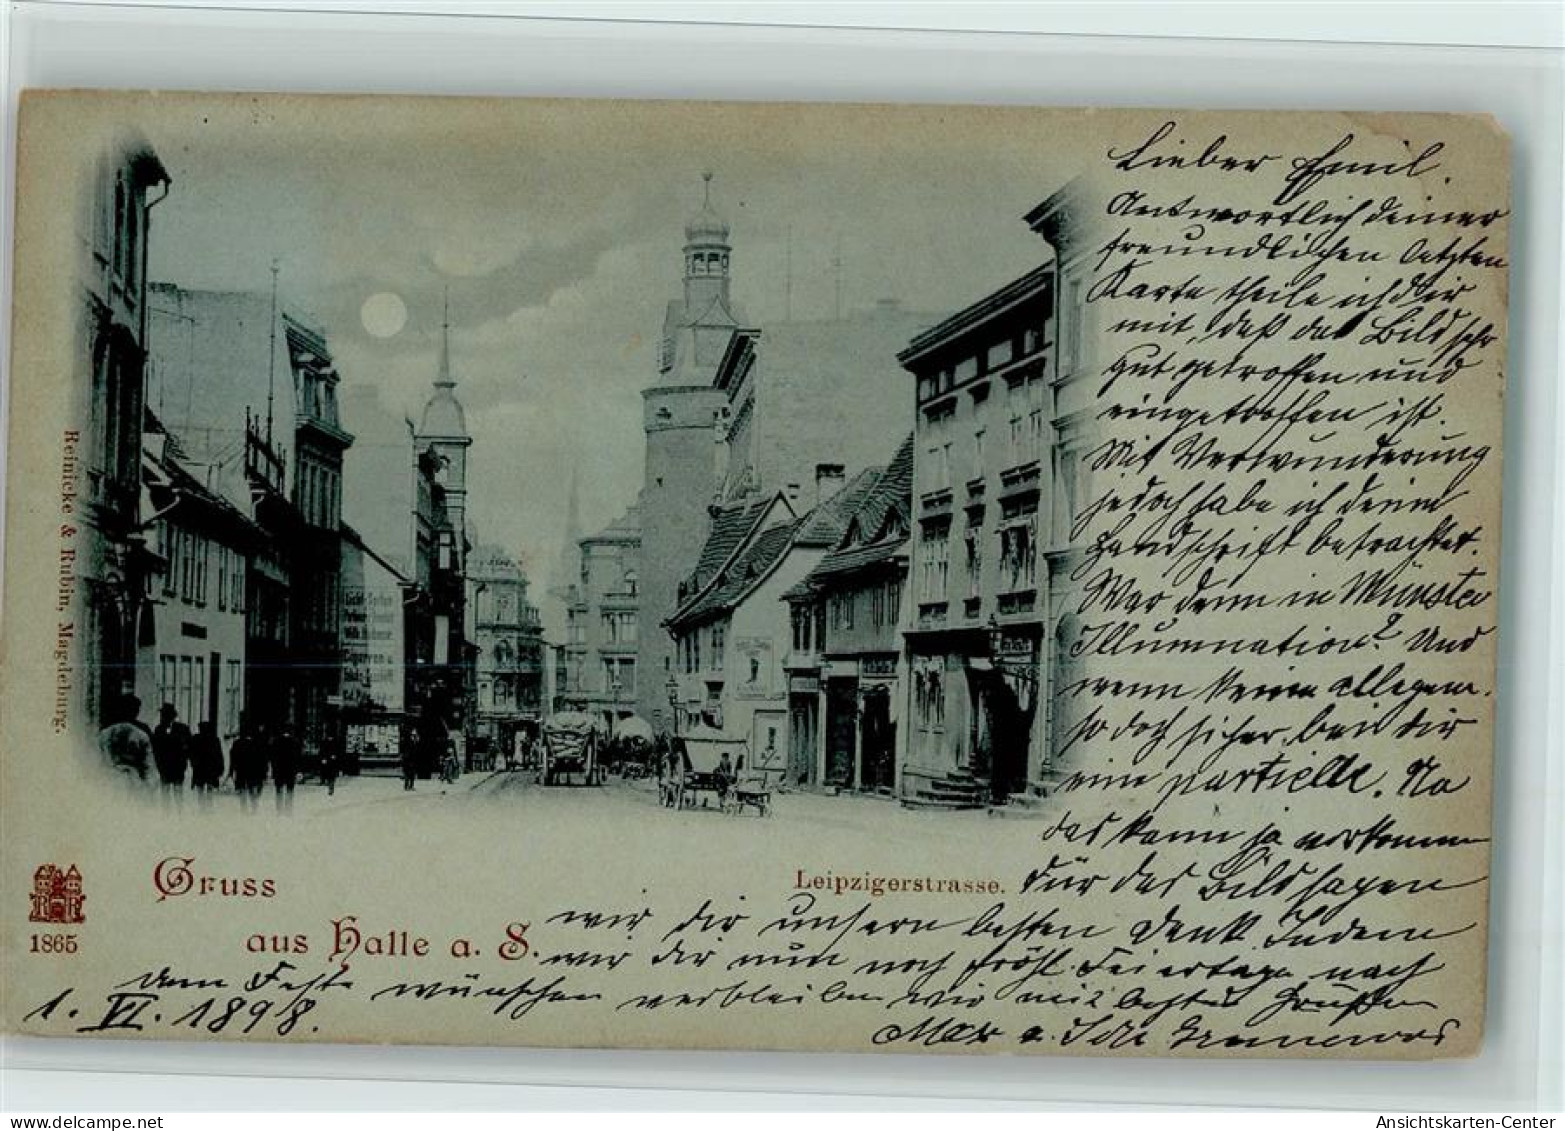 Lieber Emil.
Antwortlich deiner
freundlichen letzten
Karte theile ich dir
mit, daß das Bild sehr
gut getroffen und
eingetroffen ist.
Mit Verwunderung
jedoch habe ich deine
Handschrift betrachtet.
War denn in Münster
Illumnation? Und
wenn keine allgem.
so doch sicher bei dir
eine partielle. Na
das kann ja vorkommen
Für das Bild sagen
wir dir unsern besten Dank. Indem
wir dir nun noch fröhl. Feiertage nach
dem Feste wünschen verbleiben wir mit besten Grüßen
Max u.
1. VI. 1898.
Gruss
aus Halle a. S.
Leipzigerstrasse.
Reinicke & Rubin, Magdeburg.
R R
1865
Ansichtskarten-Center